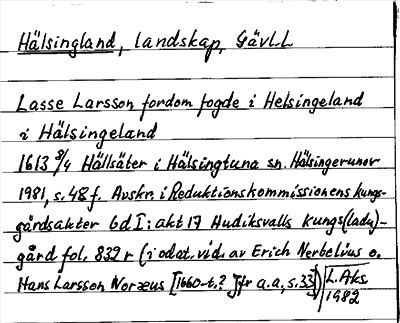 Hälsingland, landskap, Gävl.L
Lasse Larsson fordom fogde i Helsingeland
i Hälsingeland
1613 3/4 Hällsäter i Hälsingtuna sn. Hälsingerunor
1981, s. 48 f. Avskr. i Reduktionskommissionens kungs-
gårdsakter Gd I: akt 17 Hudiksvalls kungs(ladu)-
gård fol. 832 r (i odat. vid. av Erich Nerbelius o.
Hans Larsson Noræus [1660-t.?] jfr a.a, s. 33)
L. Aks.
1982